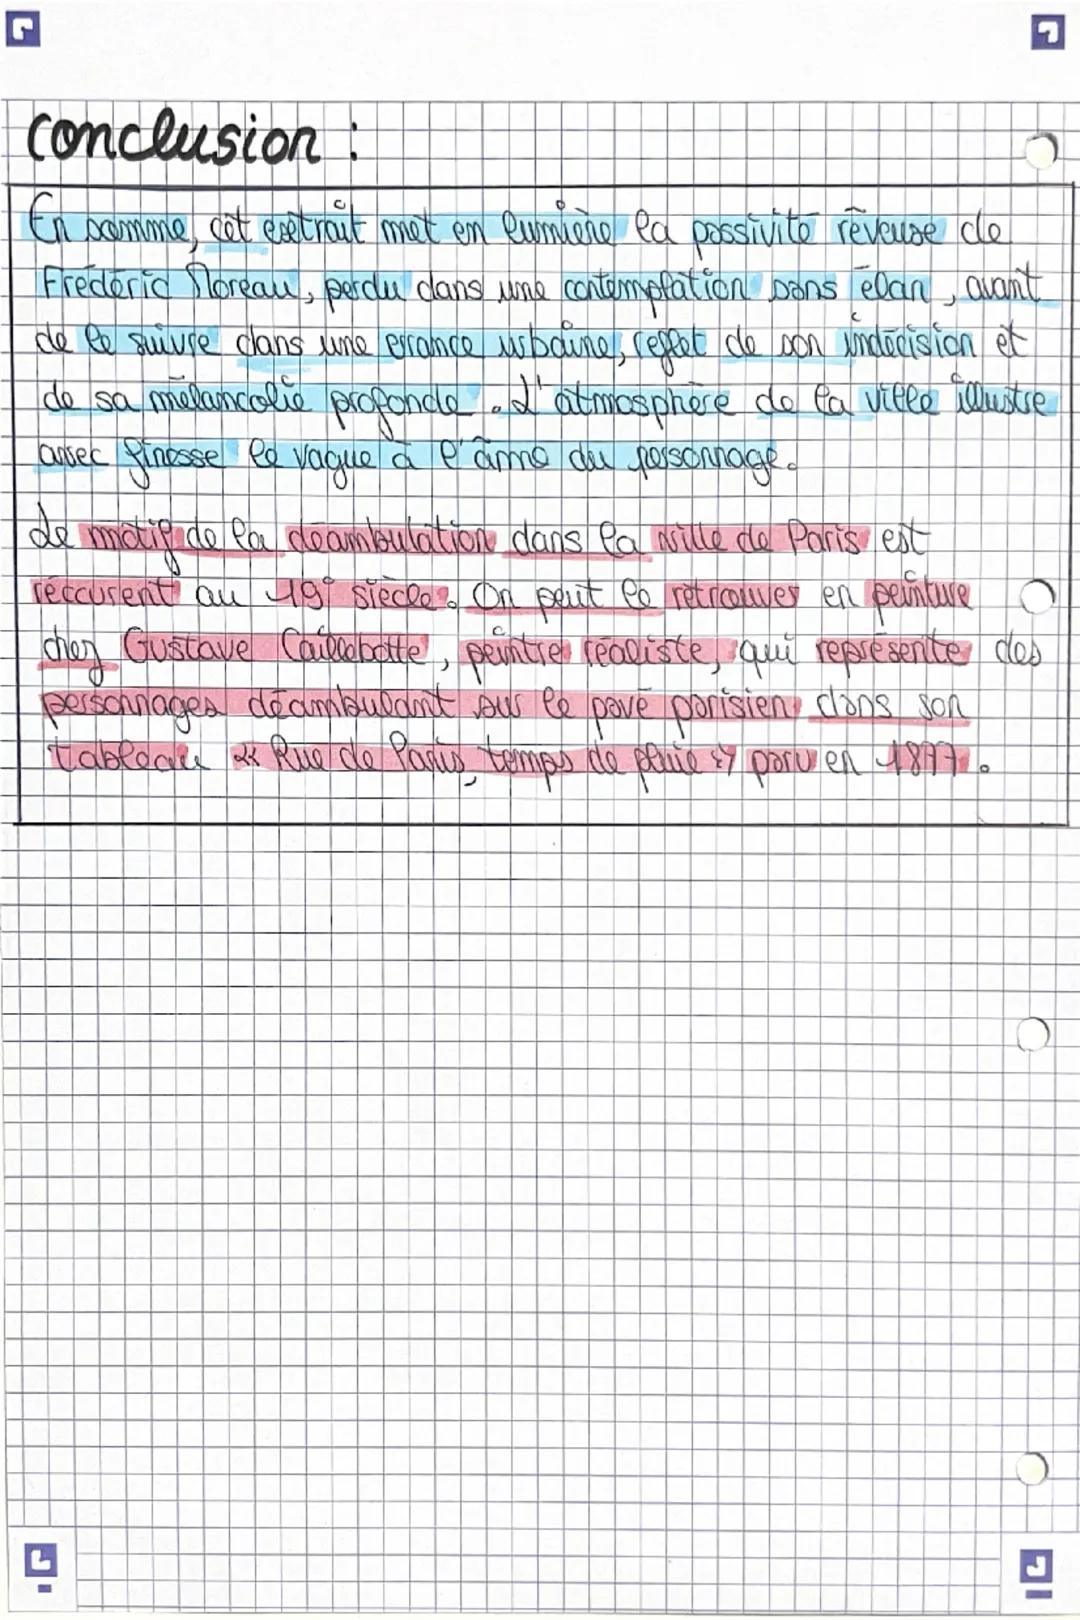 conclusion :
En somme, cet extrait met en lumière la passivité rêveuse de
Frédéric Moreau, perdu dans une contemplation sans élan, avant
de le suivre dans une errance urbaine, reflet de son indécision et
de sa mélancolie profonde. L'atmosphère de la ville illustre
avec finesse le vague à l'âme du personnage.
Le motif de la déambulation dans la ville de Paris est
réccurent au 19e siècle. On peut le retrouver en peinture
chez Gustave Caillebotte, peintre réaliste, qui représente des
personnages déambulant sur le pavé parisien dans son
tableau « Rue de Paris, temps de pluie » paru en 1877.